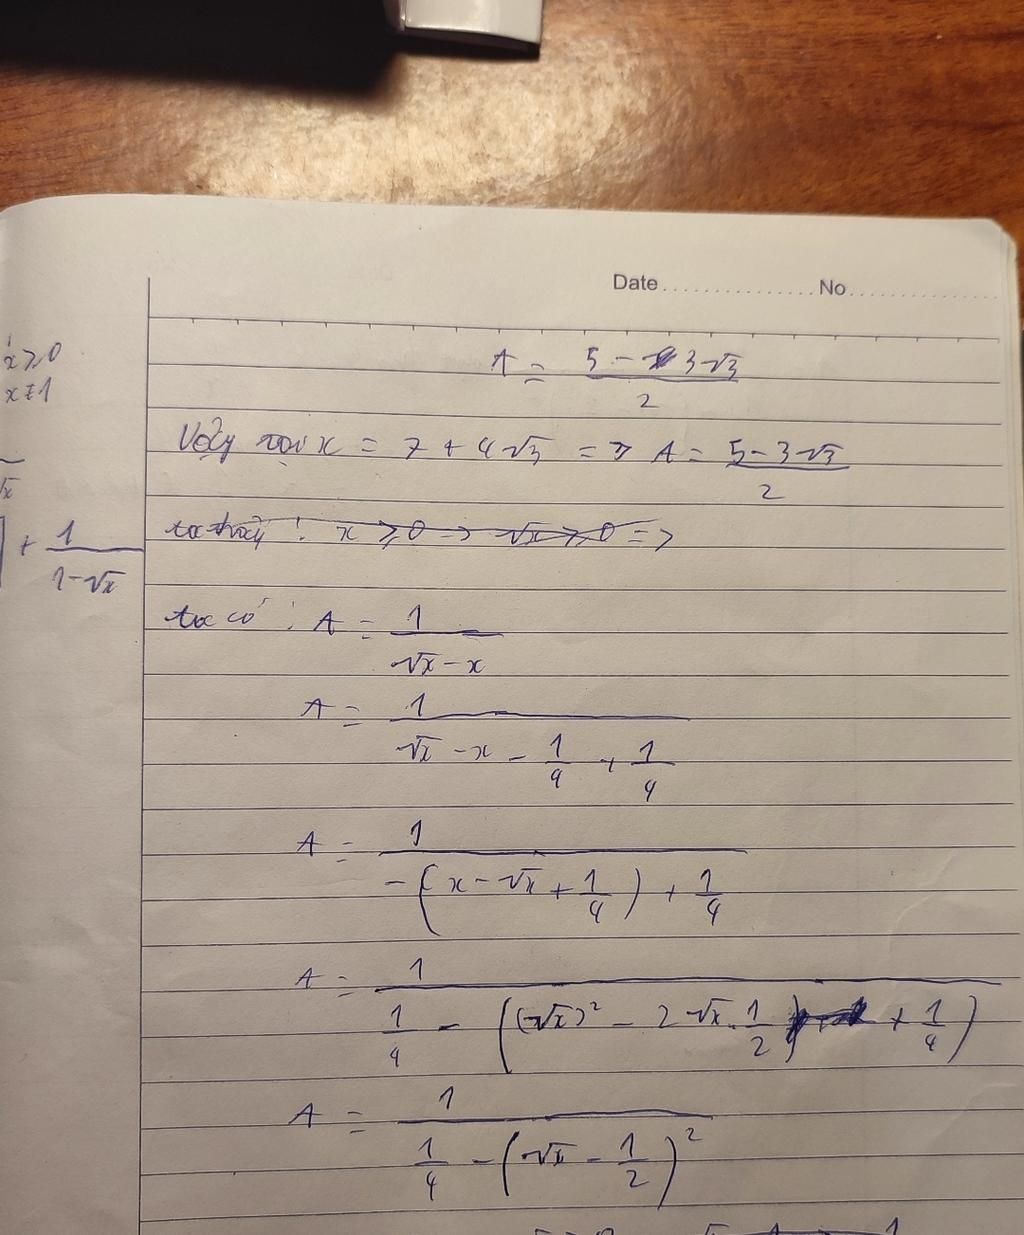 Date ............... No ...............
x ≥ 0
x ≠ 1
A = (5 - 3√3)/2
Vậy với x = 7 + 4√3 => A = (5 - 3√3)/2
√x
+ 1/(1 - √x)
ta thấy : x ≥ 0 => √x ≥ 0 =>
ta có : A = 1/(√x - x)
A = 1/(√x - x - 1/4 + 1/4)
A = 1/(-(x - √x + 1/4) + 1/4)
A = 1/(1/4 - ((√x)² - 2√x . 1/2 + 1/4))
A = 1/(1/4 - (√x - 1/2)²)